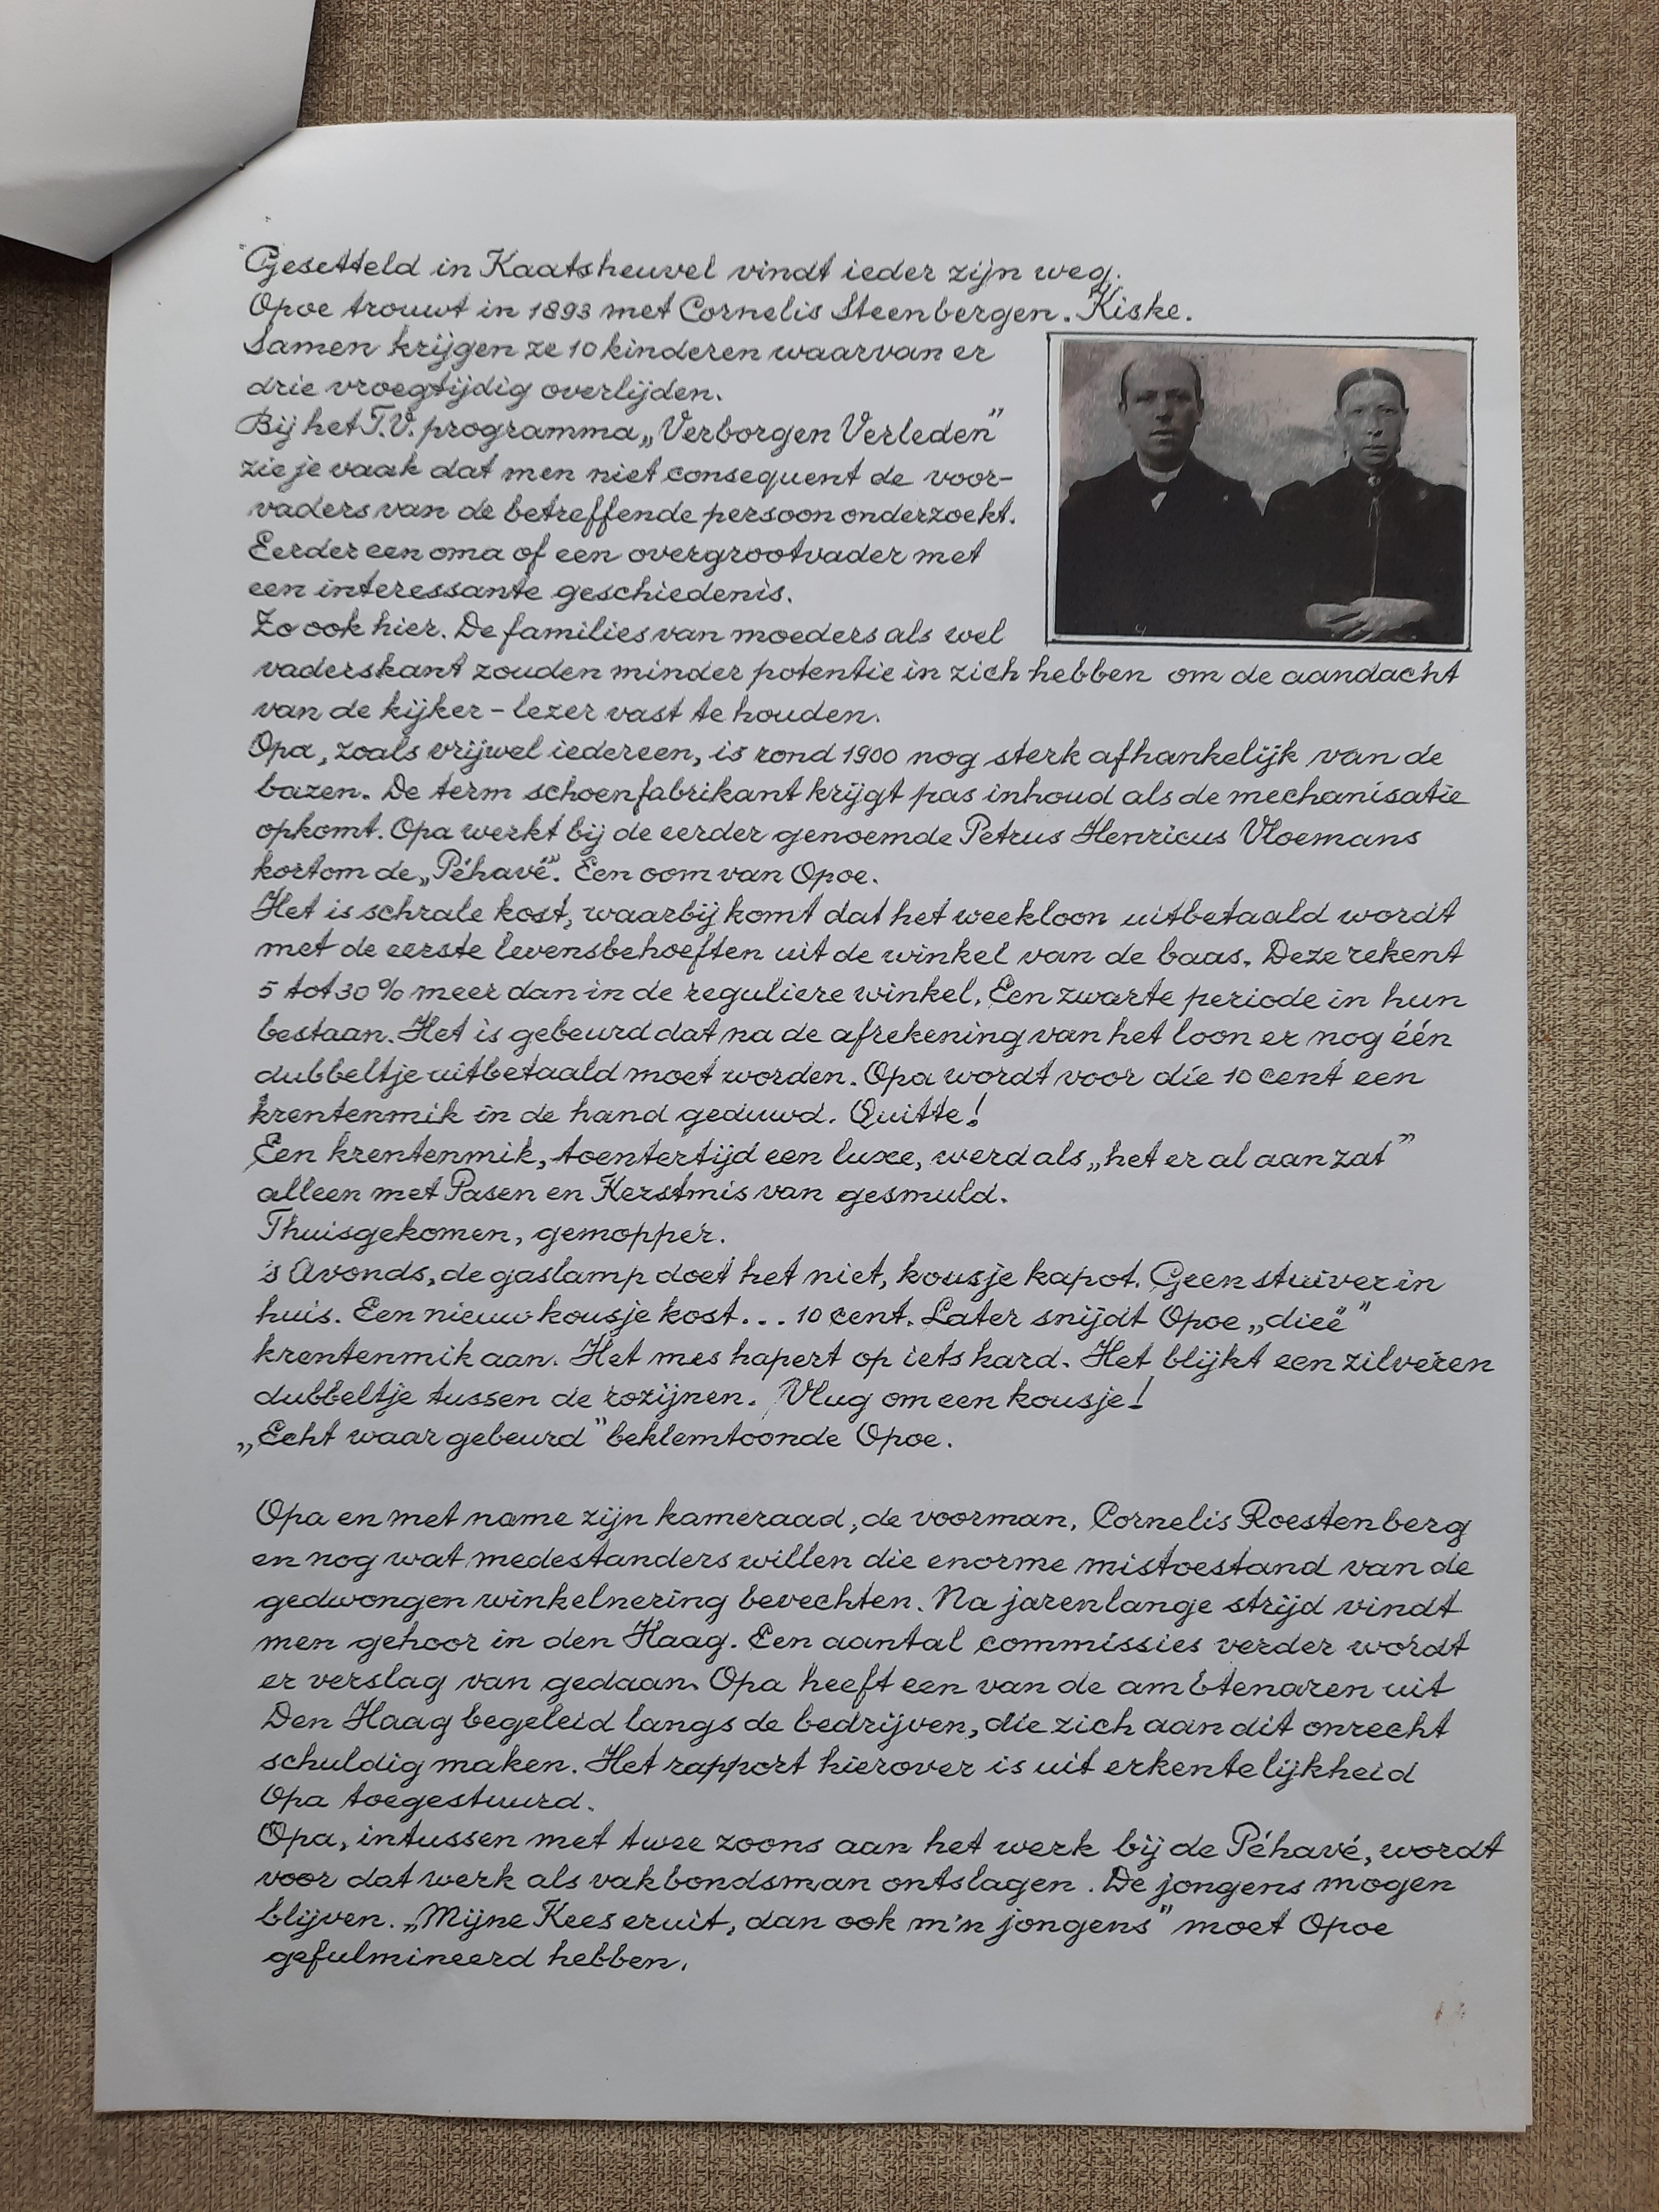 Gesetteld in Kaatsheuvel vindt ieder zijn weg.
Opoe trouwt in 1893 met Cornelis Steenbergen. Kiske.
Samen krijgen ze 10 kinderen waarvan er
drie vroegtijdig overlijden.
Bij het T.V. programma „Verborgen Verleden”
zie je vaak dat men niet consequent de voor-
vaders van de betreffende persoon onderzoekt.
Eerder een oma of een overgrootvader met
een interessante geschiedenis.
Zo ook hier. De families van moeders als wel
vaderskant zouden minder potentie in zich hebben om de aandacht
van de kijker - lezer vast te houden.
Opa, zoals vrijwel iedereen, is rond 1900 nog sterk afhankelijk van de
bazen. De term schoenfabrikant krijgt pas inhoud als de mechanisatie
opkomt. Opa werkt bij de eerder genoemde Petrus Henricus Vloemans
kortom de „Péhavé”. Een oom van Opoe.
Het is schrale kost, waarbij komt dat het weekloon uitbetaald wordt
met de eerste levensbehoeften uit de winkel van de baas. Deze rekent
5 tot 30 % meer dan in de reguliere winkel. Een zwarte periode in hun
bestaan. Het is gebeurd dat na de afrekening van het loon er nog één
dubbeltje uitbetaald moet worden. Opa wordt voor die 10 cent een
krentenmik in de hand geduwd. Quitte!
Een krentenmik, toentertijd een luxe, werd als „het er al aan zat”
alleen met Pasen en Kerstmis van gesmuld.
Thuisgekomen, gemopper.
's Avonds, de gaslamp doet het niet, kousje kapot. Geen stuiver in
huis. Een nieuw kousje kost... 10 cent. Later snijdt Opoe „dieë”
krentenmik aan. Het mes hapert op iets hard. Het blijkt een zilveren
dubbeltje tussen de rozijnen. Vlug om een kousje!
„Echt waar gebeurd” beklemtoonde Opoe.
Opa en met name zijn kameraad, de voorman, Cornelis Roestenberg
en nog wat medestanders willen die enorme mistoestand van de
gedwongen winkelnering bevechten. Na jarenlange strijd vindt
men gehoor in den Haag. Een aantal commissies verder wordt
er verslag van gedaan. Opa heeft een van de ambtenaren uit
Den Haag begeleid langs de bedrijven, die zich aan dit onrecht
schuldig maken. Het rapport hierover is uit erkentelijkheid
Opa toegestuurd.
Opa, intussen met twee zoons aan het werk bij de Péhavé, wordt
voor dat werk als vakbondsman ontslagen. De jongens mogen
blijven. „Mijne Kees eruit, dan ook m'n jongens” moet Opoe
gefulmineerd hebben.